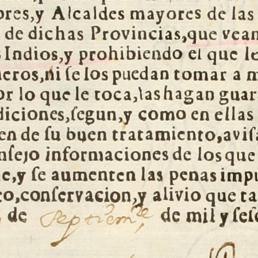 ores, y Alcaldes mayores de las
de dichas Provincias, que vean
s Indios, y prohibiendo el que le
neros, ni se los puedan tomar a m
or lo que le toca, las hagan guar
diciones, segun, y como en ellas
en de su buen tratamiento, avisa
nsejo informaciones de los que
ne, y se aumenten las penas impu
eo, conservacion, y alivio que ta
de Septiembre de mil y sesc